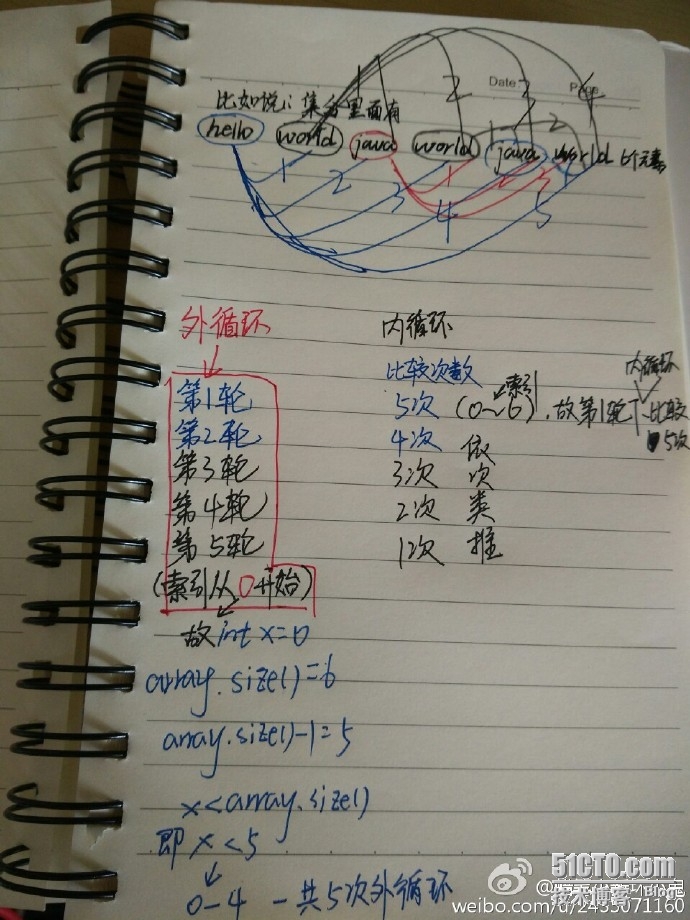 Date
Page
比如说:集合里面有
hello world java world java world 6个元素
1 2 3 4 5
外循环 内循环
比较次数
第1轮 5次 (0~6)索引,故第1轮内循环比较5次
第2轮 4次 依
第3轮 3次 次
第4轮 2次 类
第5轮 1次 推
(索引从0开始)
故int x=0
array.size()=6
array.size()-1=5
x<array.size()
即 x<5
0-4 一共5次外循环
51CTO.com
技术博客 Blog
weibo.com/u/2435071160